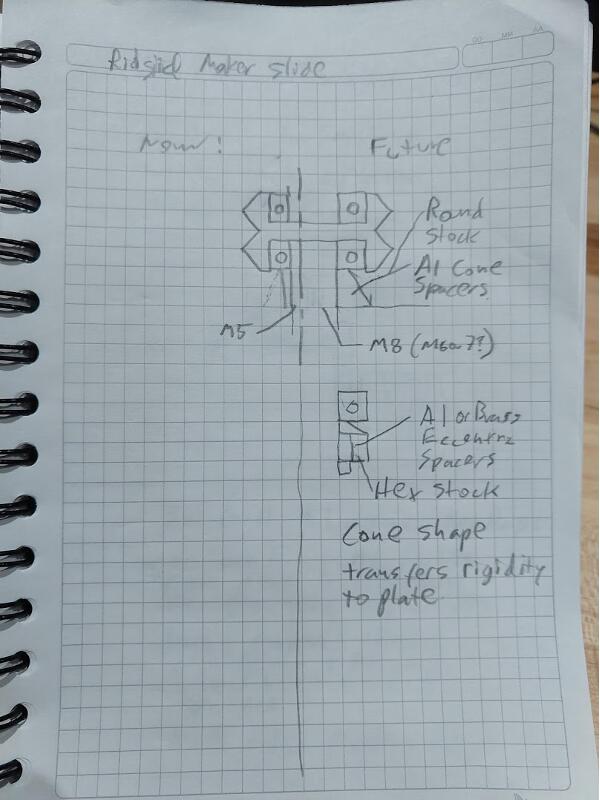 DD MM AA
Ridgid Maker slide
Now!
Future
Round
Stock
Al Cone
Spacers
M5
M8 (M6 or 7?)
Al or Brass
Eccentric
Spacers
Hex Stock
Cone shape
transfers rigidity
to plate